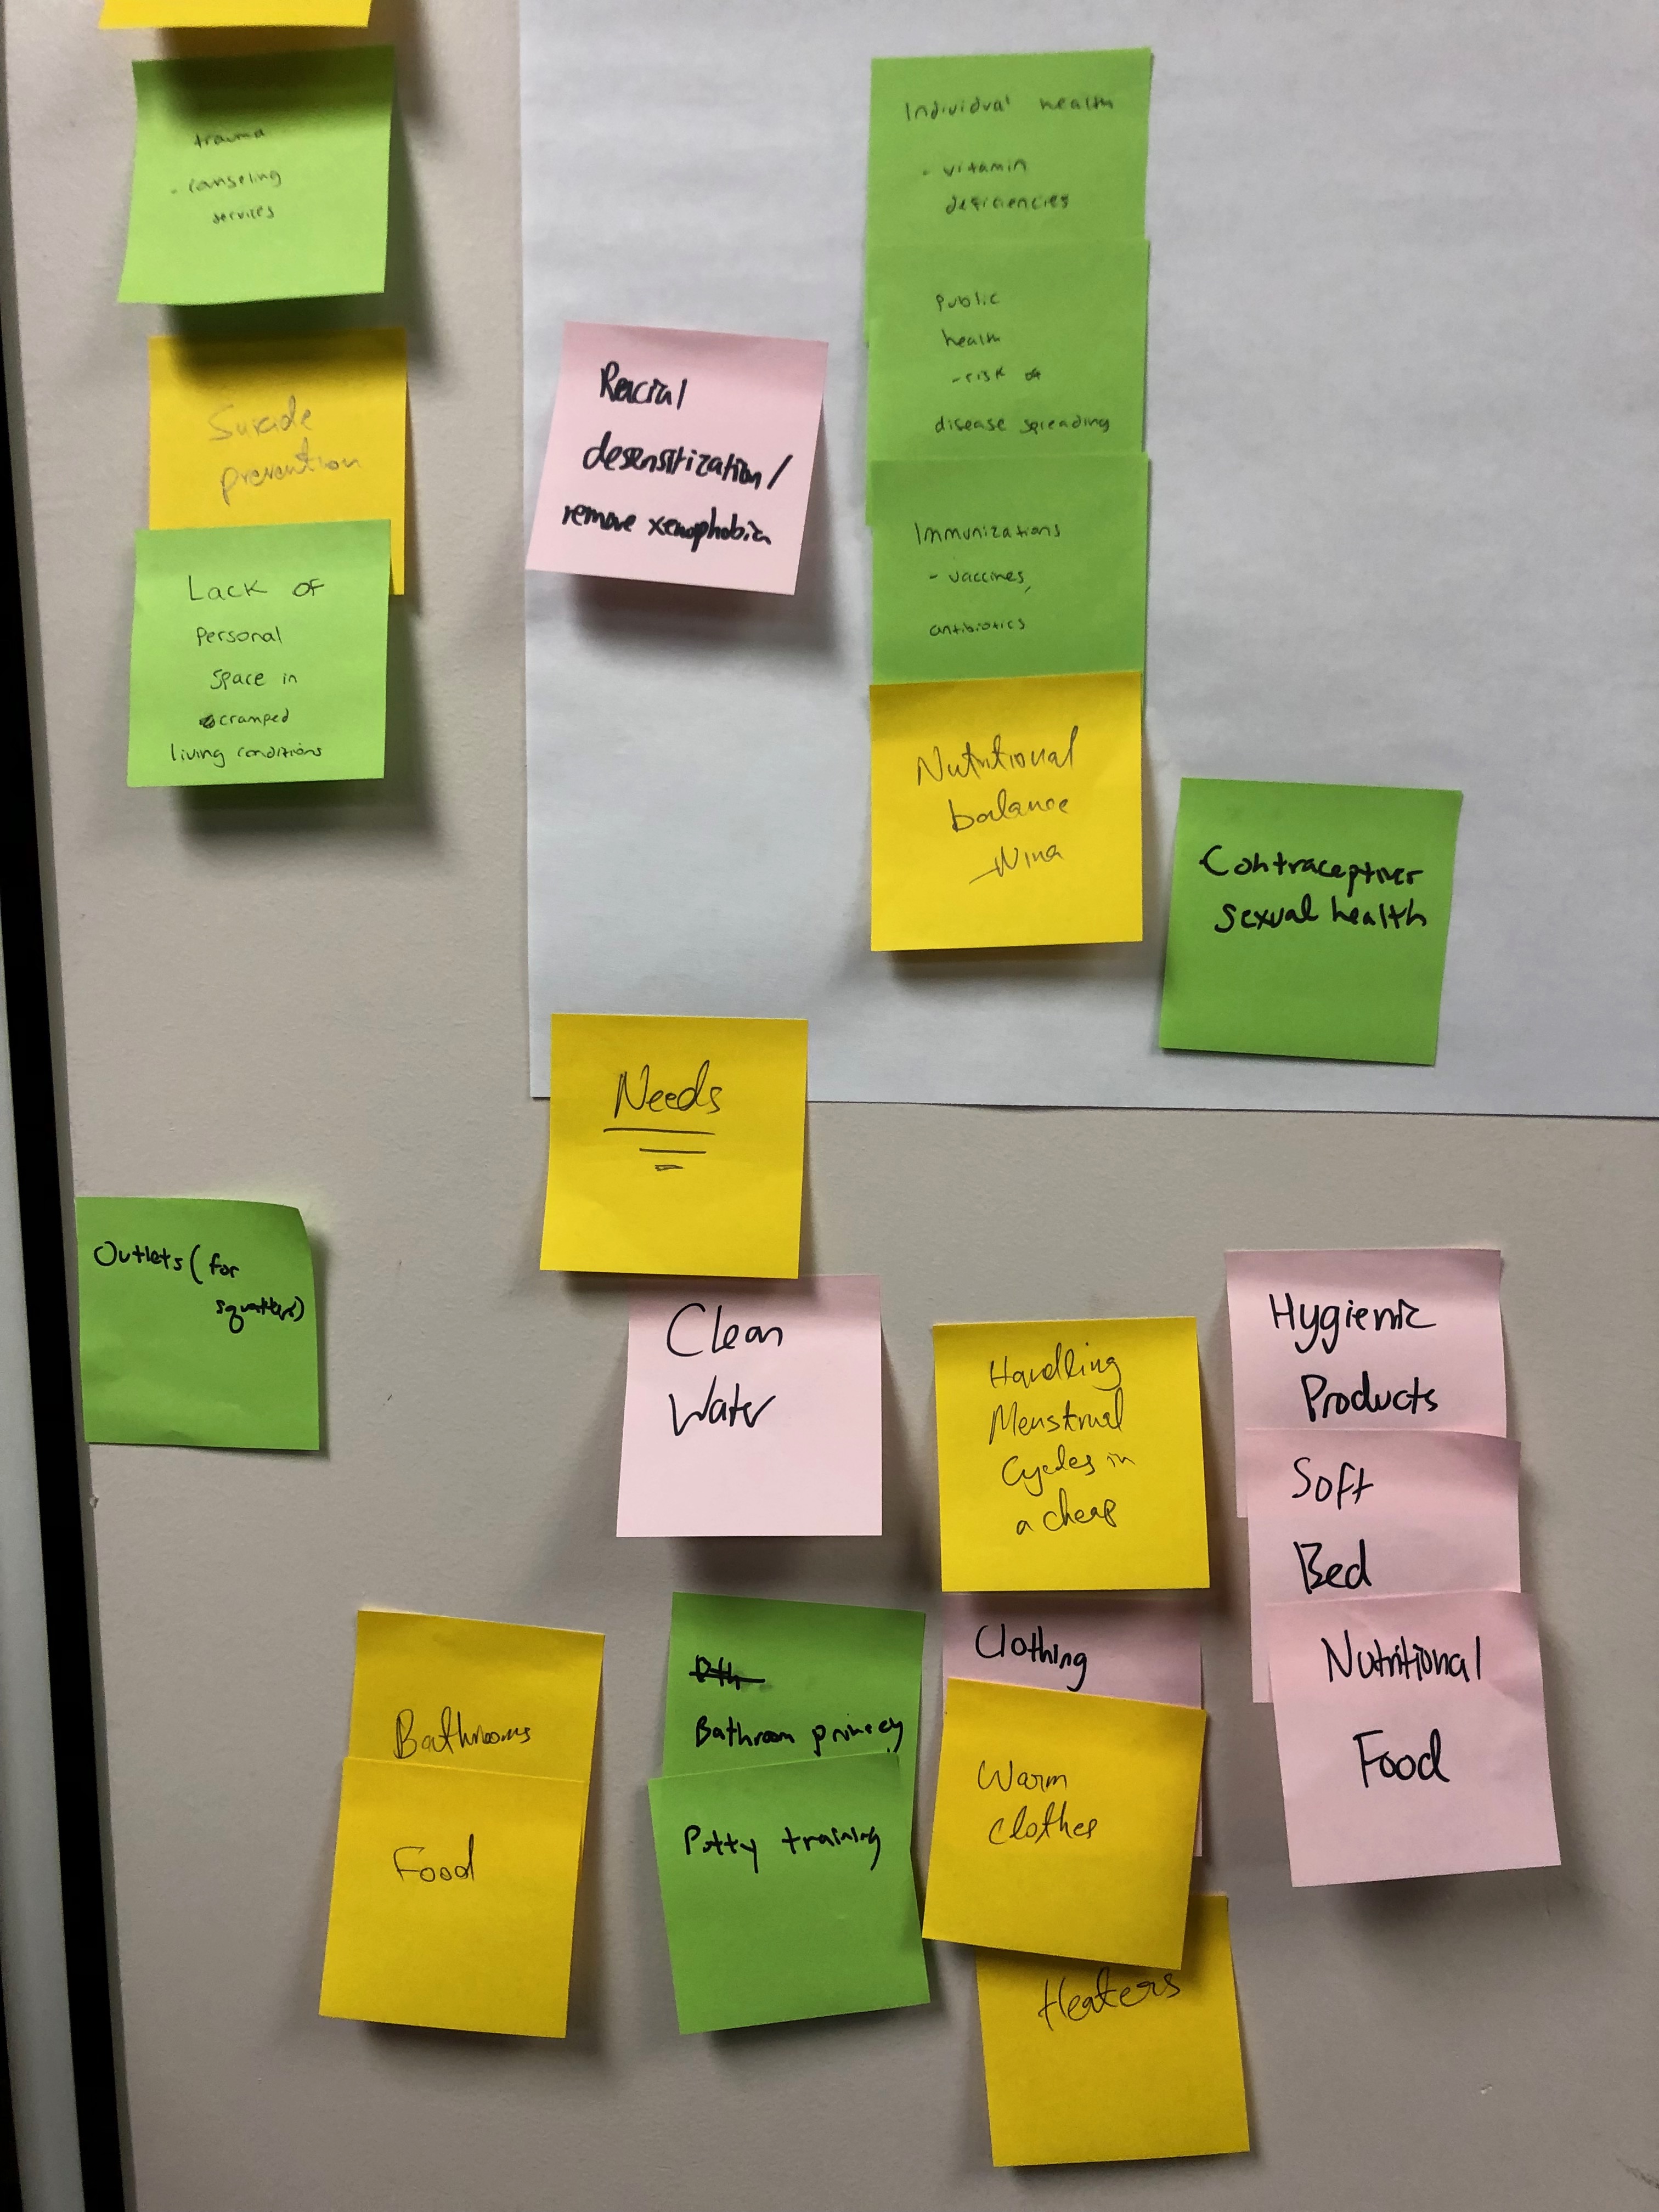 trauma
- counseling
services
Suicide
prevention
Lack of
personal
space in
cramped
living conditions
Racial
desensitization/
remove xenophobia
Individual health
- vitamin
deficiencies
public
health
- risk of
disease spreading
Immunizations
- vaccines,
antibiotics
Nutritional
balance
- Nina
Contraceptives
sexual health
Needs
Outlets (for
squatters)
Clean
Water
Handling
Menstrual
Cycles in
a cheap
Hygienic
Products
Soft
Bed
Nutritional
Food
Bathrooms
Food
Bathroom privacy
Potty training
Clothing
Warm
clothes
Heaters